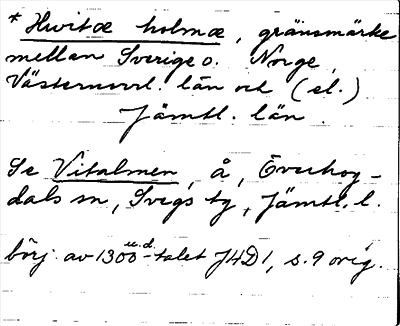 * Hwitæ holmæ, gränsmärke
mellan Sverige o. Norge,
Västernorrl. län och (el.)
Jämtl. län.
Se Vitalmen, å, Överhog-
dals sn, Svegs tg, Jämtl. l.
börj. av 1300-talet J4D1, s. 9 orig.
u.d.